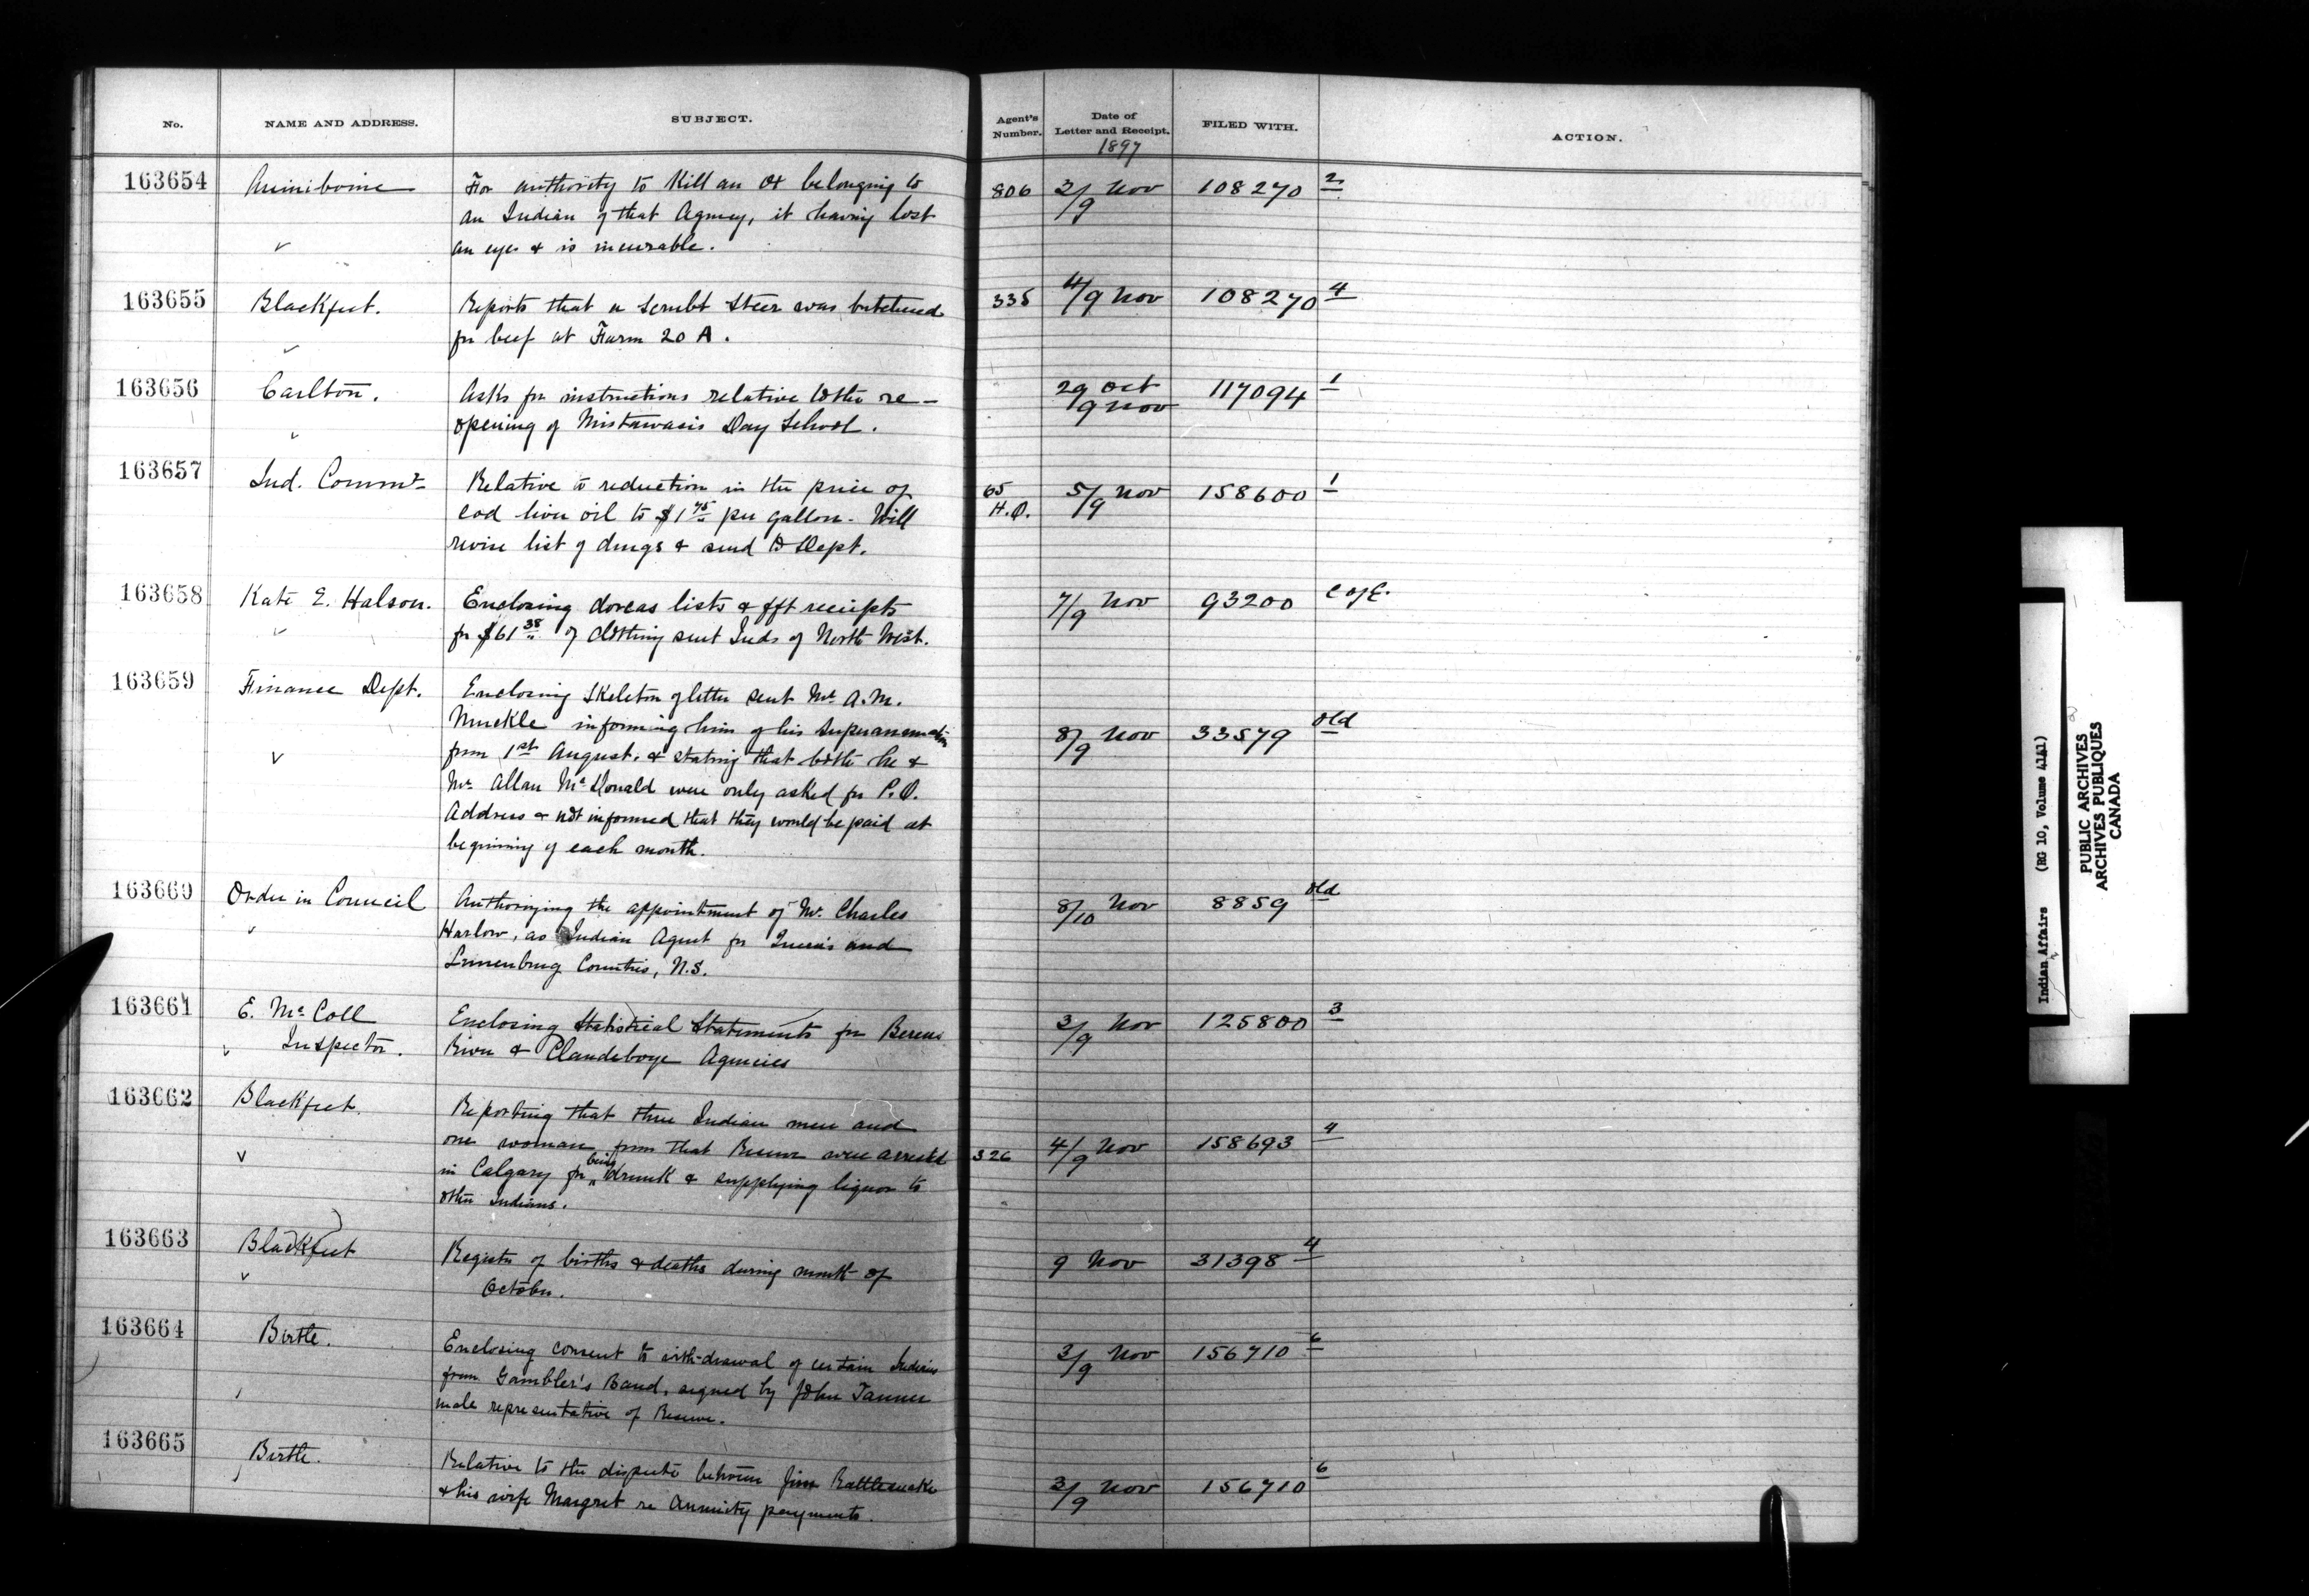 No. NAME AND ADDRESS. SUBJECT. Agent's Number. Date of Letter and Receipt. FILED WITH. ACTION.
1897
163654 Assiniboine For authority to kill an ox belonging to 806 3/9 Nov 108270 2
an Indian of that Agency, it having lost
an eye & is incurable.
163655 Blackfeet. Reports that a scrubt steer was butchered 335 4/9 Nov 108270 4
for beef at Farm 20 A.
163656 Carlton. Asks for instructions relative to the re- 29 Oct 117094 1
opening of Mistawasis Day School. /9 Nov
163657 Ind. Commr Relative to reduction in the price of 65 H.O. 5/9 Nov 158600 1
cod liver oil to $1 75 per gallon. Will
revise list of drugs & send to Dept.
163658 Kate E. Halson. Enclosing dorcas lists & fft receipts 7/9 Nov 93200
for $61 38 of clothing sent Inds of North West.
163659 Finance Dept. Enclosing skeleton of letter sent Mr. A.M.
Muckle informing him of his superannuation 8/9 Nov 33579 old
from 1st August. & stating that both he &
Mr. Allan McDonald were only asked for P.O.
Address & not informed that they would be paid at
beginning of each month.
163660 Order in Council Authorizing the appointment of Mr. Charles 8/10 Nov 8859 old
Harlow, as Indian Agent for Queen's and
Lunenburg Counties, N.S.
163661 E. McColl Enclosing Statistical Statements for Berens 3/9 Nov 125800 3
Inspector. River & Clandeboye Agencies
163662 Blackfeet. Reporting that three Indian men and
one woman from that Reserve were arrested 326 4/9 Nov 158693 4
in Calgary for being drunk & supplying liquor to
other Indians.
163663 Blackfeet Register of births & deaths during month of 9 Nov 31398 4
October.
163664 Birtle. Enclosing consent to with-drawal of certain Indians 3/9 Nov 156710 6
from Gambler's Band, signed by John Tanner
male representative of Reserve.
163665 Birtle. Relative to the dispute between Jim Rattlesnake 3/9 Nov 156710 6
& his wife Margret re Annuity payments.
Indian Affairs (RG 10, Volume 4141)
PUBLIC ARCHIVES
ARCHIVES PUBLIQUES
CANADA